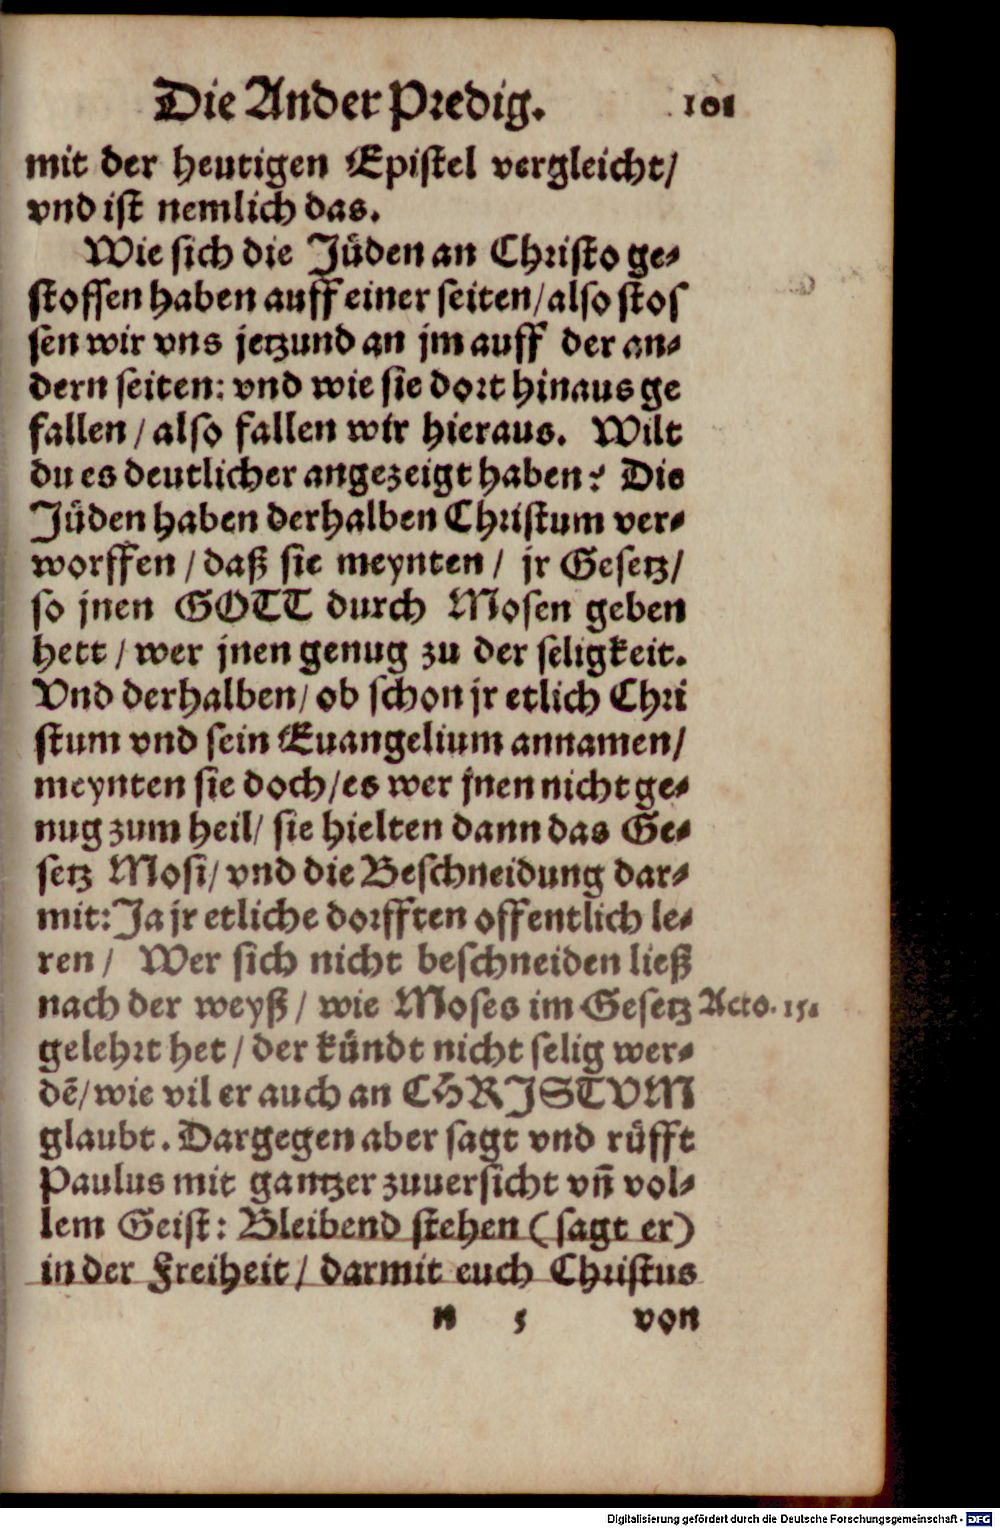 Die Ander Predig. 101
mit der heutigen Epistel vergleicht/
vnd ist nemlich das.
Wie sich die Jüden an Christo ge-
stossen haben auff einer seiten/also stos
sen wir vns jetzund an jm auff der an-
dern seiten: vnd wie sie dort hinaus ge
fallen/also fallen wir hieraus. Wilt
du es deutlicher angezeigt haben? Die
Jüden haben derhalben Christum ver-
worffen/daß sie meynten/ jr Gesetz/
so jnen GOTT durch Mosen geben
hett/wer jnen genug zu der seligkeit.
Vnd derhalben/ob schon jr etlich Chri
stum vnd sein Euangelium annamen/
meynten sie doch/es wer jnen nicht ge-
nug zum heil/ sie hielten dann das Ge-
setz Mosi/vnd die Beschneidung dar-
mit: Ja jr etliche dorfften offentlich le-
ren/ Wer sich nicht beschneiden ließ
nach der weyß/ wie Moses im Gesetz Acto. 15.
gelehrt het/der kündt nicht selig wer-
dē/wie vil er auch an CHRISTVM
glaubt. Dargegen aber sagt vnd rüfft
Paulus mit gantzer zuuersicht vñ vol-
lem Geist: Bleibend stehen (sagt er)
in der Freiheit/ darmit euch Christus
n 5 von
Digitalisierung gefördert durch die Deutsche Forschungsgemeinschaft - DFG